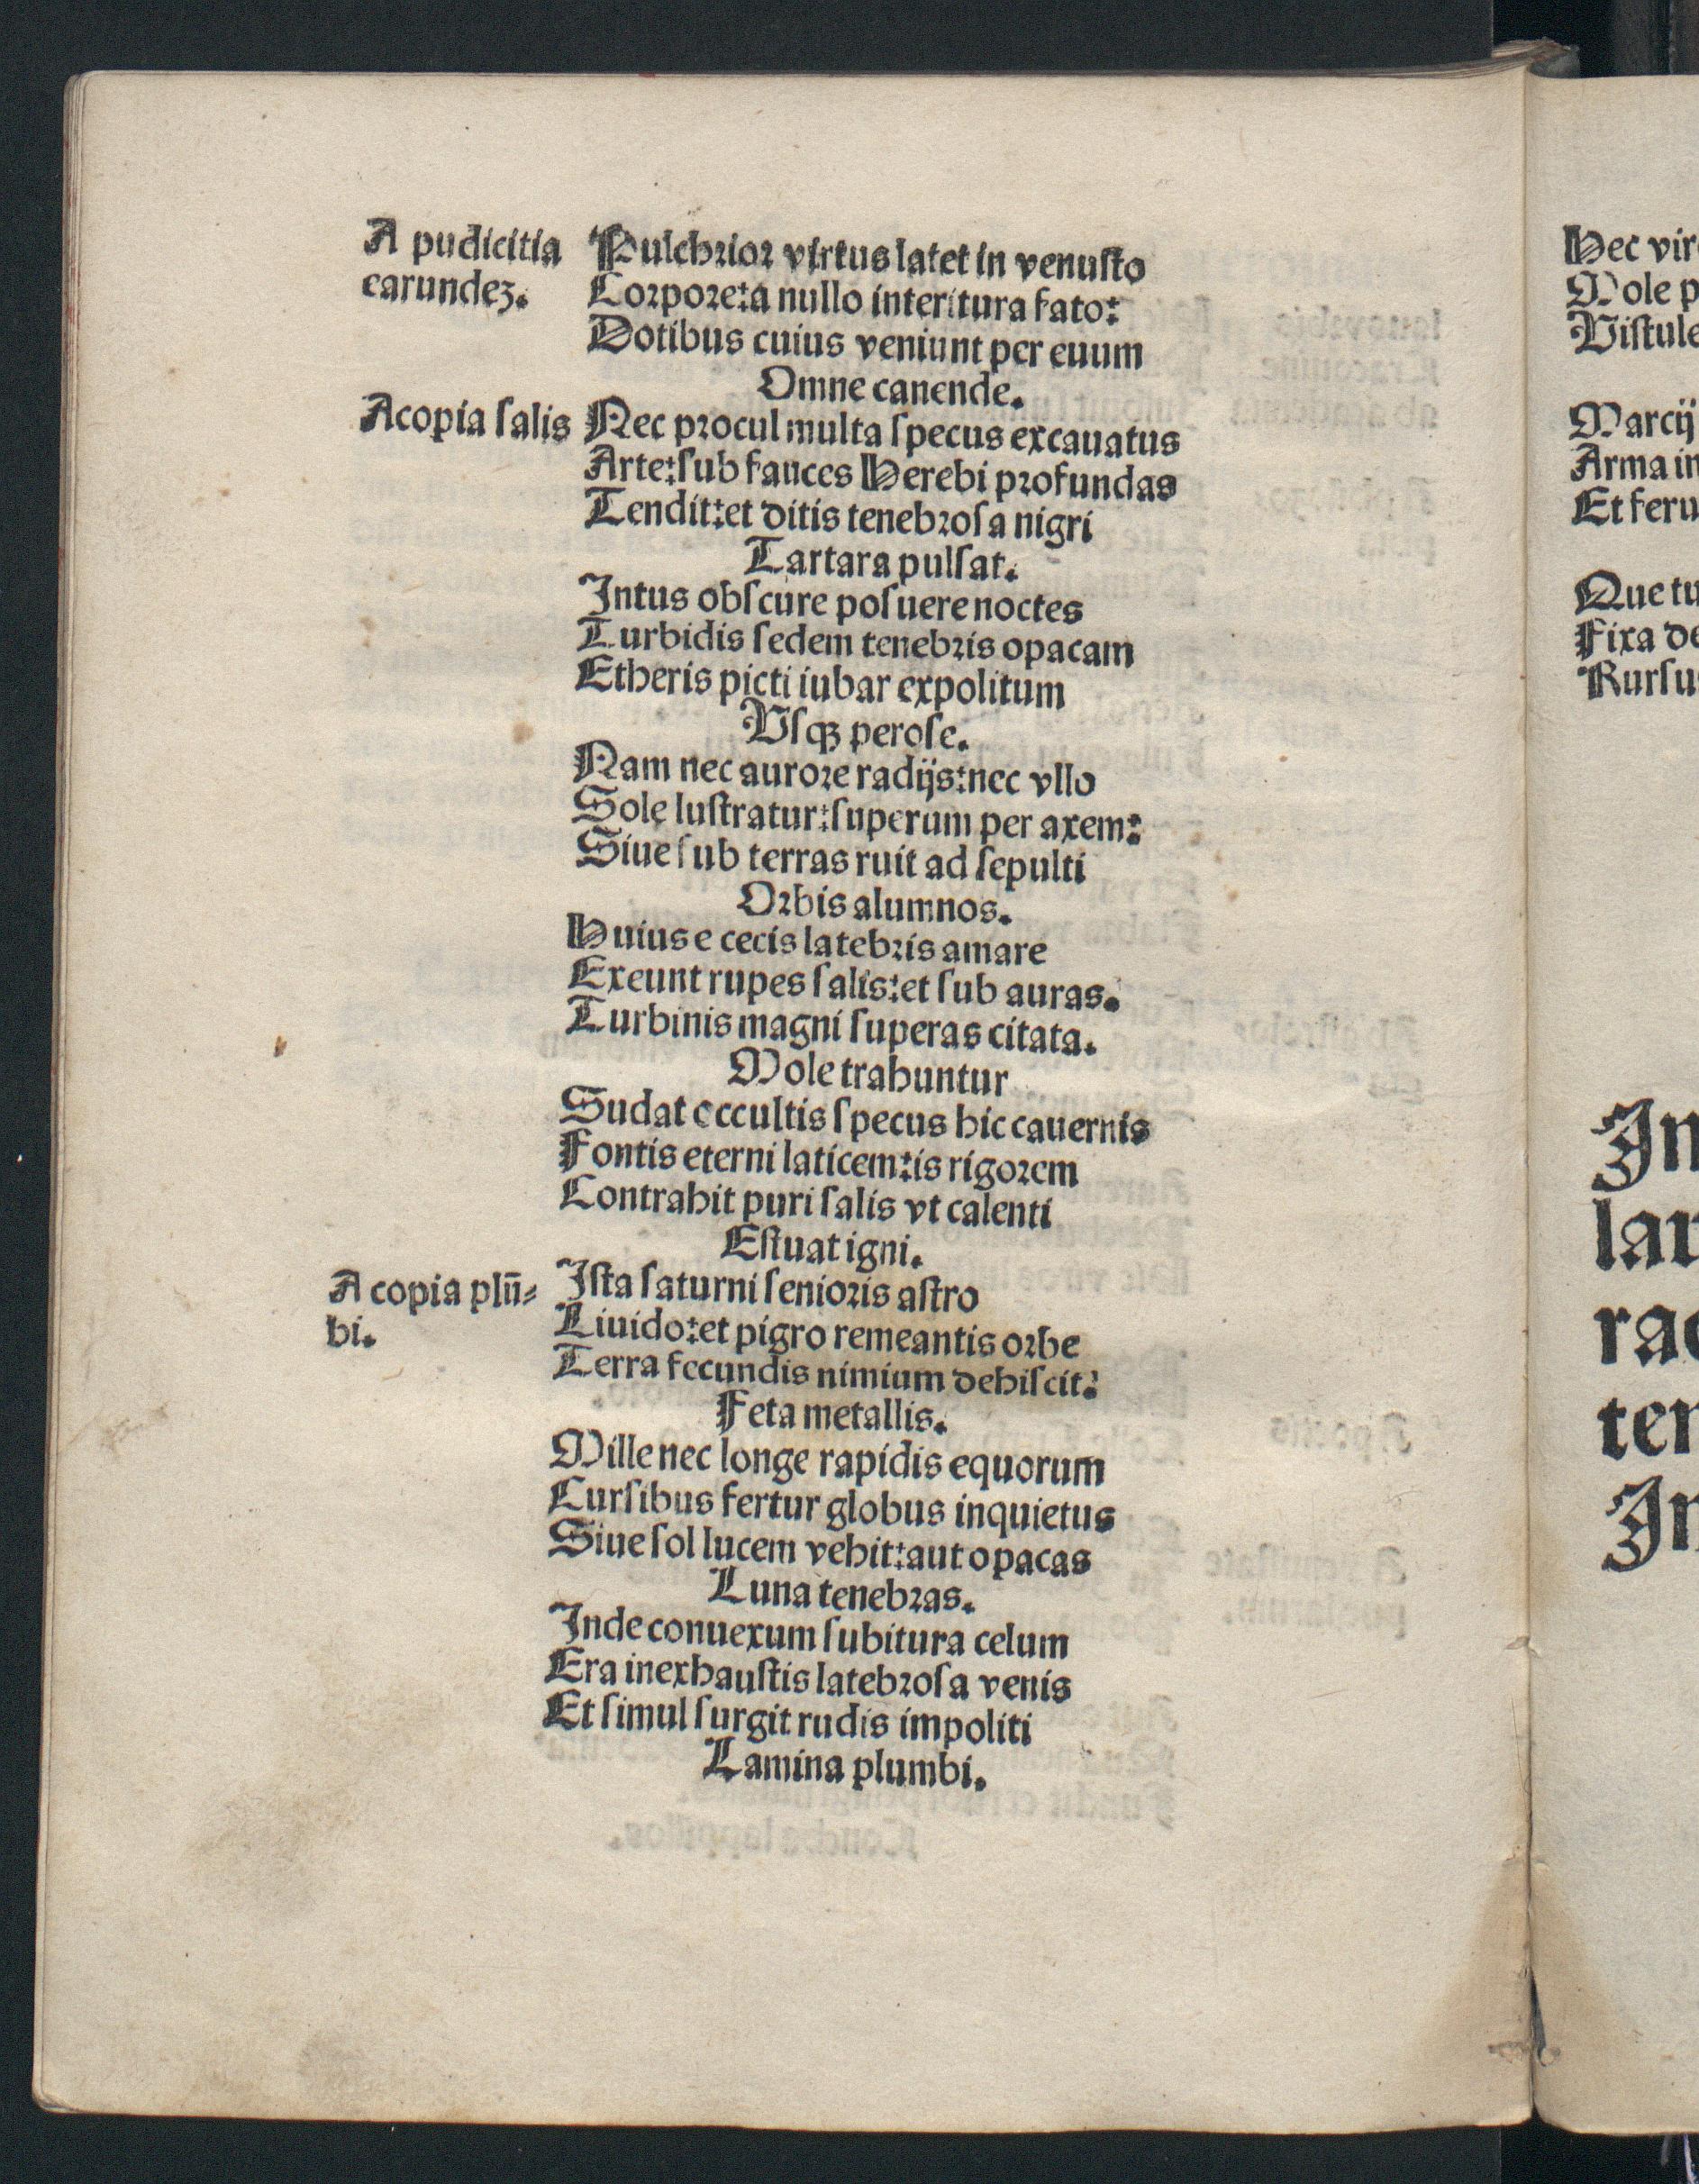 A pudicitia
earundeʒ.
Pulchrior virtus latet in venuſto
Corpore: a nullo interitura fato:
Dotibus cuius veniunt per euum
Omne canende.
A copia ſalis
Nec procul multa ſpecus excauatus
Arte: ſub fauces Herebi profundas
Tendit: et ditis tenebroſa nigri
Tartara pulſat.
Intus obſcure poſuere noctes
Turbidis ſedem tenebris opacam
Etheris picti iubar expolitum
Vſqꝫ peroſe.
Nam nec aurore radijs: nec vllo
Sole luſtratur: ſuperum per axem:
Siue ſub terras ruit ad ſepulti
Orbis alumnos.
Huius e cecis latebris amare
Exeunt rupes ſalis: et ſub auras.
Turbinis magni ſuperas citata.
Mole trahuntur
Sudat occultis ſpecus hic cauernis
Fontis eterni laticem: is rigorem
Contrahit puri ſalis vt calenti
Eſtuat igni.
A copia plū⸗
bi.
Iſta ſaturni ſenioris aſtro
Liuido: et pigro remeantis orbe
Terra fecundis nimium dehiſcit:
Feta metallis.
Mille nec longe rapidis equorum
Curſibus fertur globus inquietus
Siue ſol lucem vehit: aut opacas
Luna tenebras.
Inde conuexum ſubitura celum
Era inexhauſtis latebroſa venis
Et ſimul ſurgit rudis impoliti
Lamina plumbi.
Hec
Mole
Marcij
Arma
Et
Que
Fixa